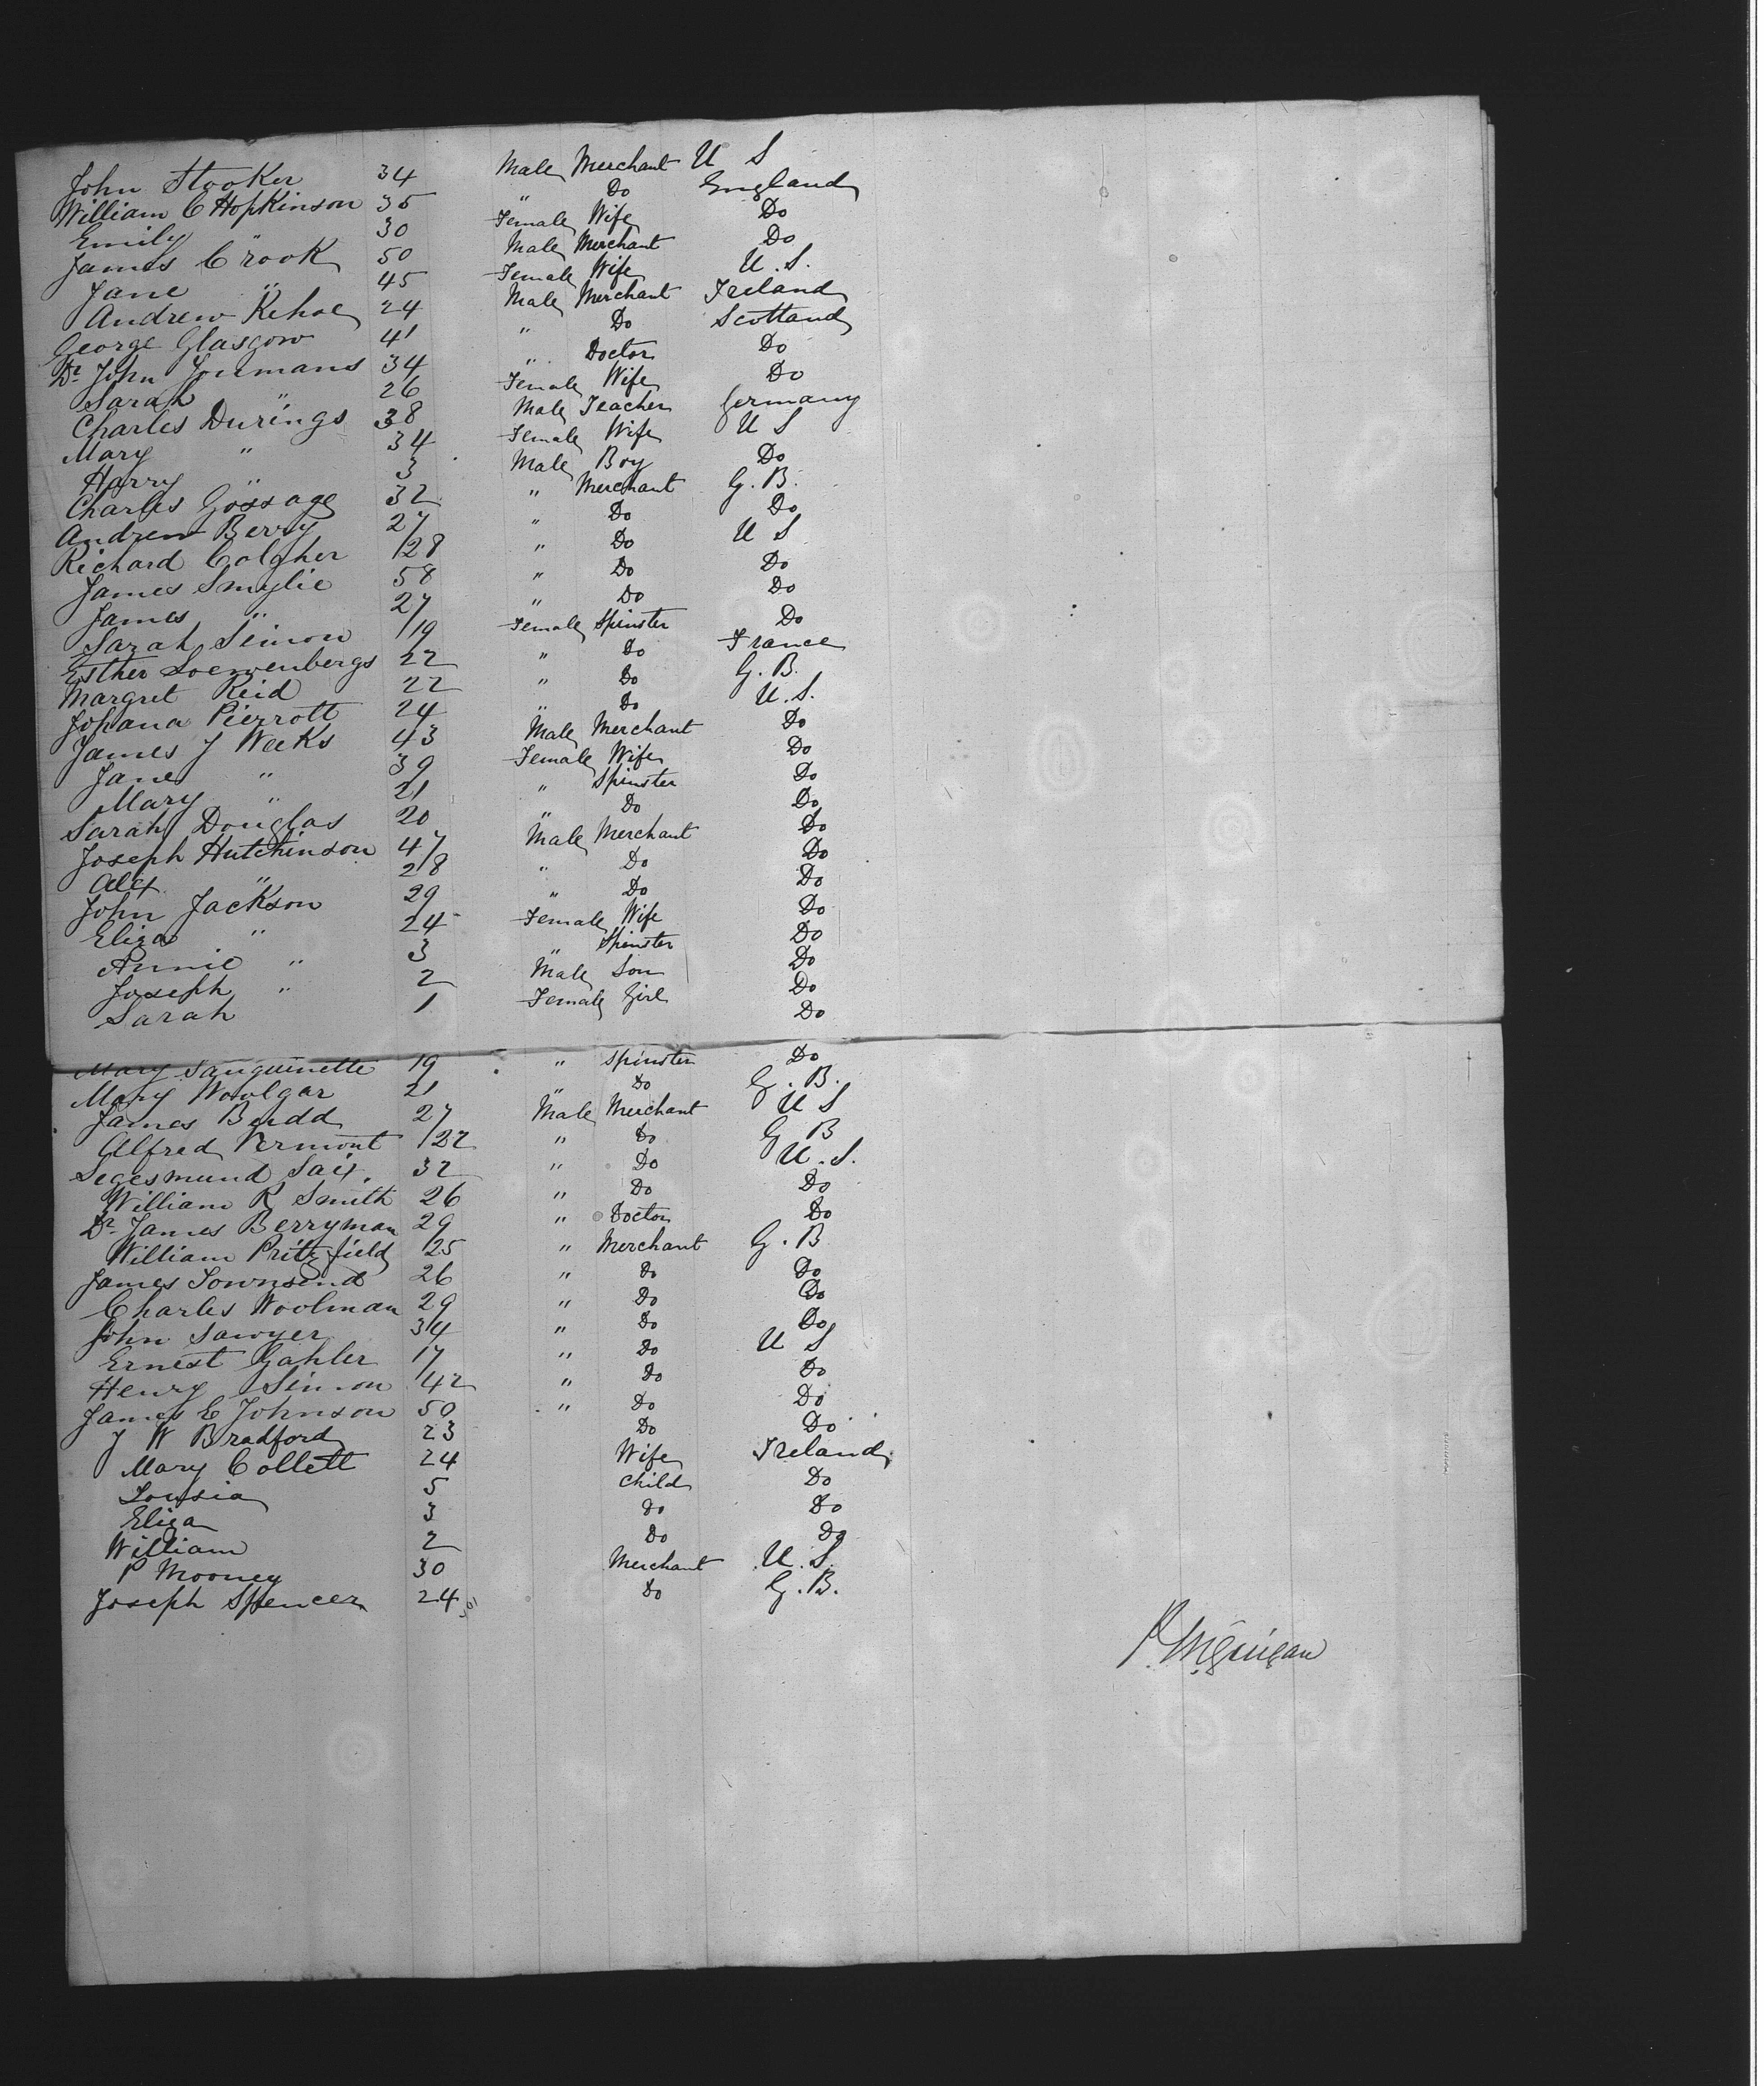 John Stooker 34 Male Merchant U S
William C Hopkinson 35 " Do England
Emily " 30 Female Wife Do
James Crook 50 Male Merchant Do
Jane " 45 Female Wife U.S.
Andrew Kehoe 24 Male Merchant Ireland
George Glasgow 41 " Do Scotland
Dr John Youmans 34 " Doctor Do
Sarah " 26 Female Wife Do
Charles Durings 38 Male Teacher Germany
Mary " 34 Female Wife U S
Harry " 3 Male Boy Do
Charles Gossage 32 " Merchant G.B.
Andrew Berry 27 " Do Do
Richard Colgher 28 " Do U S
James Smylie 58 " Do Do
James " 27 " Do Do
Sarah Simon 19 Female Spinster Do
Esther Loewenbergs 22 " Do France
Margret Reid 22 " Do G.B.
Johana Pierrott 24 " Do U.S.
James J Weeks 43 Male Merchant Do
Jane " 39 Female Wife Do
Mary " 21 " Spinster Do
Sarah Douglas 20 " Do Do
Joseph Hutchinson 47 Male Merchant Do
Alex " 28 " Do Do
John Jackson 29 " Do Do
Eliza " 24 Female Wife Do
Annie " 3 " Spinster Do
Joseph " 2 Male Son Do
Sarah 1 Female Girl Do
Do
Mary Sanguinette 19 " Spinster Do
Mary Woolgar 21 " Do G.B.
James Budd 27 Male Merchant U S
Alfred Vermont 22 " Do G B
Segesmund Saix. 32 " Do U.S.
William R Smith 26 " Do Do
Dr James Berryman 29 " Doctor Do
William Pritzfield 25 " Merchant G.B
James Townsend 26 " Do Do
Charles Woolman 29 " Do Do
John Sawyer 34 " Do Do
Ernest Gahler 17 " Do U S
Henry Simon 42 " Do Do
James E Johnson 50 " Do Do
J W Bradford 23 Do Do
Mary Collett 24 Wife Ireland
Lousia 5 Child Do
Eliza 3 Do Do
William 2 Do Do
P Mooney 30 Merchant U.S.
Joseph Spencer 24 Do G.B.